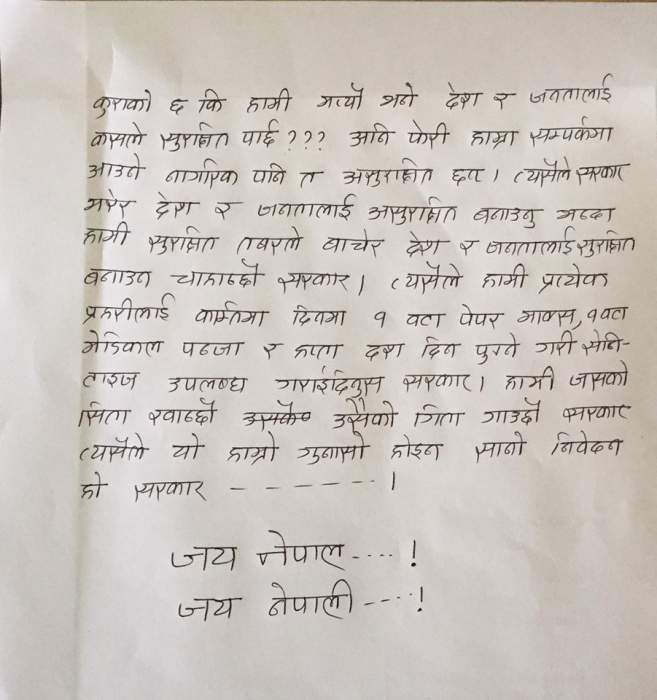 कुराको छ कि हामी मर्‍यौं भने देश र जनतालाई
कसले सुरक्षित पार्छ ??? अनि फेरी हाम्रा सम्पर्कमा
आउने नागरिक पनि त असुरक्षित छन् । त्यसैले सरकार
मरेर देश र जनतालाई असुरक्षित बनाउनु भन्दा
हामी सुरक्षित तबरले बाचेर देश र जनतालाई सुरक्षित
बनाउन चाहान्छौं सरकार । त्यसैले हामी प्रत्येक
प्रहरीलाई कम्तिमा दिनमा १ वटा पेपर माक्स, १ वटा
मेडिकल पन्जा र हप्ता दश दिन पुग्ने गरी सेनि-
टाइज उपलब्ध गराईदिनुस सरकार । हामी जसको
सिता खान्छौं उसैको गिता गाउछौं सरकार
त्यसैले यो हाम्रो गुनासो होइन सानो निवेदन
हो सरकार - - - - - - - ।
जय नेपाल .... !
जय नेपाली .... !